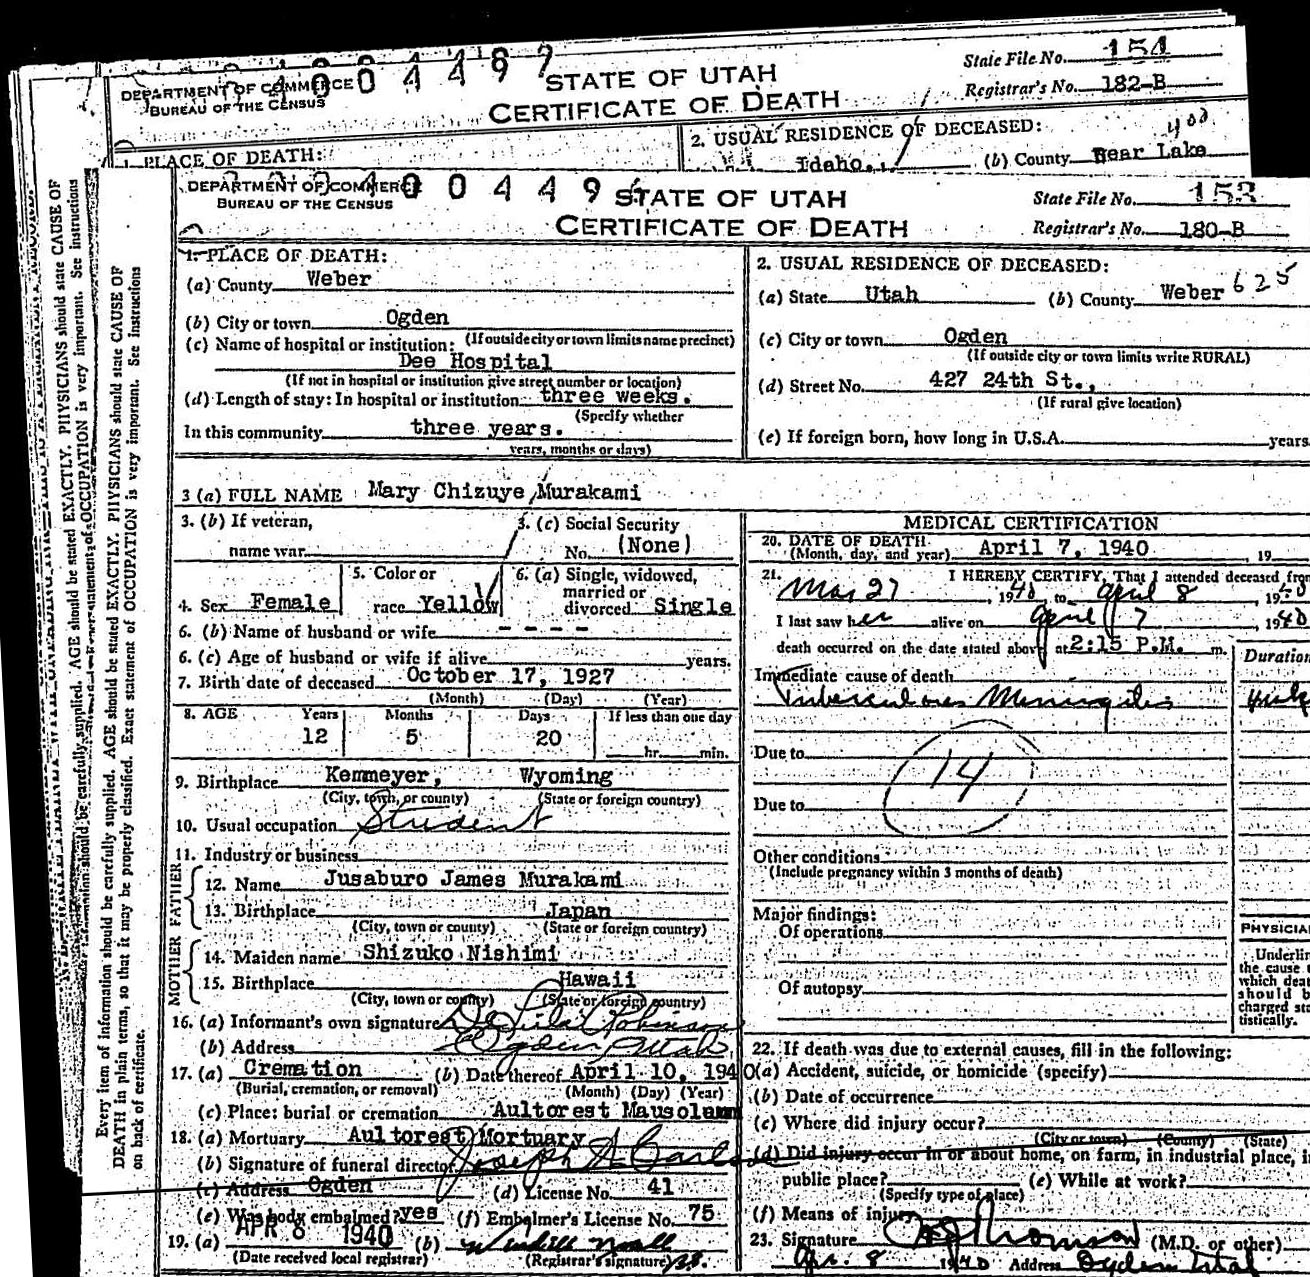 4 0 0 4 4 9 7
DEPARTMENT OF COMMERCE
BUREAU OF THE CENSUS
STATE OF UTAH
CERTIFICATE OF DEATH
State File No. 154
Registrar's No. 182-B
1. PLACE OF DEATH:
2. USUAL RESIDENCE OF DECEASED:
Idaho., (b) County Bear Lake
400
4 0 0 4 4 9
DEPARTMENT OF COMMERCE
BUREAU OF THE CENSUS
STATE OF UTAH
CERTIFICATE OF DEATH
State File No. 153
Registrar's No. 180-B
1. PLACE OF DEATH:
(a) County Weber
(b) City or town Ogden
(If outside city or town limits name precinct)
(c) Name of hospital or institution:
Dee Hospital
(If not in hospital or institution give street number or location)
(d) Length of stay: In hospital or institution three weeks.
(Specify whether
In this community three years.
years, months or days)
2. USUAL RESIDENCE OF DECEASED:
(a) State Utah (b) County Weber 625
(c) City or town Ogden
(If outside city or town limits write RURAL)
(d) Street No. 427 24th St.,
(If rural give location)
(e) If foreign born, how long in U.S.A. years
3 (a) FULL NAME Mary Chizuye Murakami
3. (b) If veteran,
name war
3. (c) Social Security
No. (None)
4. Sex Female
5. Color or
race Yellow
6. (a) Single, widowed,
married or
divorced Single
6. (b) Name of husband or wife - - - -
6. (c) Age of husband or wife if alive years.
7. Birth date of deceased October 17, 1927
(Month) (Day) (Year)
8. AGE Years Months Days If less than one day
12 5 20 hr. min.
9. Birthplace Kemmeyer, Wyoming
(City, town, or county) (State or foreign country)
10. Usual occupation Student
11. Industry or business
FATHER
12. Name Jusaburo James Murakami
13. Birthplace Japan
(City, town or county) (State or foreign country)
MOTHER
14. Maiden name Shizuko Nishimi
15. Birthplace Hawaii
(City, town or county) (State or foreign country)
16. (a) Informant's own signature Robinson
(b) Address Ogden, Utah
17. (a) Cremation (b) Date thereof April 10, 1940
(Burial, cremation, or removal) (Month) (Day) (Year)
(c) Place: burial or cremation Aultorest Mausoleum
18. (a) Mortuary Aultorest Mortuary
(b) Signature of funeral director Joseph A
(c) Address Ogden (d) License No. 41
(e) Was body embalmed? yes (f) Embalmer's License No. 75
19. (a) APR 8 1940 (b)
(Date received local registrar) (Registrar's signature)
MEDICAL CERTIFICATION
20. DATE OF DEATH
(Month, day, and year) April 7, 1940, 19
21. I HEREBY CERTIFY, That I attended deceased from
Mar 27, 1940 to April 8, 1940
I last saw her alive on April 7, 1940
death occurred on the date stated above at 2:15 P.M. m.
Duration
Immediate cause of death
Tuberculous Meningitis
Due to
14
Due to
Other conditions
(Include pregnancy within 3 months of death)
Major findings:
Of operations
Of autopsy
PHYSICIAN
Underlin
the cause
which deat
should b
charged sta
tistically.
22. If death was due to external causes, fill in the following:
(a) Accident, suicide, or homicide (specify)
(b) Date of occurrence
(c) Where did injury occur?
(City or town) (County) (State)
(d) Did injury occur in or about home, on farm, in industrial place, i
public place? (e) While at work?
(Specify type of place)
(f) Means of injury
23. Signature Thomson (M.D. or other)
Apr. 8 1940 Address Ogden Utah
Every item of information should be carefully supplied. AGE should be stated EXACTLY. PHYSICIANS should state CAUSE OF
DEATH in plain terms, so that it may be properly classified. Exact statement of OCCUPATION is very important. See instructions
on back of certificate.
should be carefully supplied. AGE should be stated EXACTLY. PHYSICIANS should state CAUSE OF
statement of OCCUPATION is very important. See instructions